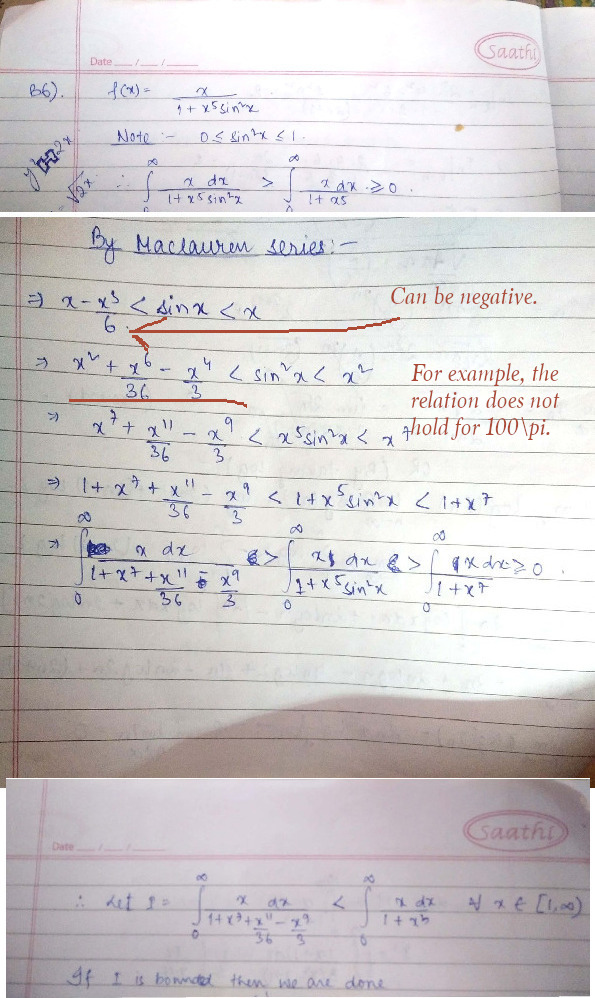 Saathi
Date __/__/__
B6). f(x) = x / (1 + x⁵sin²x)
Note :- 0 ≤ sin²x ≤ 1.
∴ ∫₀^∞ x dx / (1 + x⁵sin²x) > ∫₀^∞ x dx / (1 + x⁵) ≥ 0.
By Maclauren series:-
⇒ x - x³/6 < sinx < x
Can be negative.
⇒ x² + x⁶/36 - x⁴/3 < sin²x < x²
For example, the
relation does not
hold for 100\pi.
⇒ x⁷ + x¹¹/36 - x⁹/3 < x⁵sin²x < x⁷
⇒ 1 + x⁷ + x¹¹/36 - x⁹/3 < 1 + x⁵sin²x < 1 + x⁷
⇒ ∫₀^∞ x dx / (1 + x⁷ + x¹¹/36 - x⁹/3) > ∫₀^∞ x dx / (1 + x⁵sin²x) > ∫₀^∞ x dx / (1 + x⁷) ≥ 0.
Saathi
Date __/__/__
∴ Let I = ∫₀^∞ x dx / (1 + x⁷ + x¹¹/36 - x⁹/3) < ∫₀^∞ x dx / (1 + x⁵) ∀ x ∈ [1, ∞)
If I is bounded then we are done